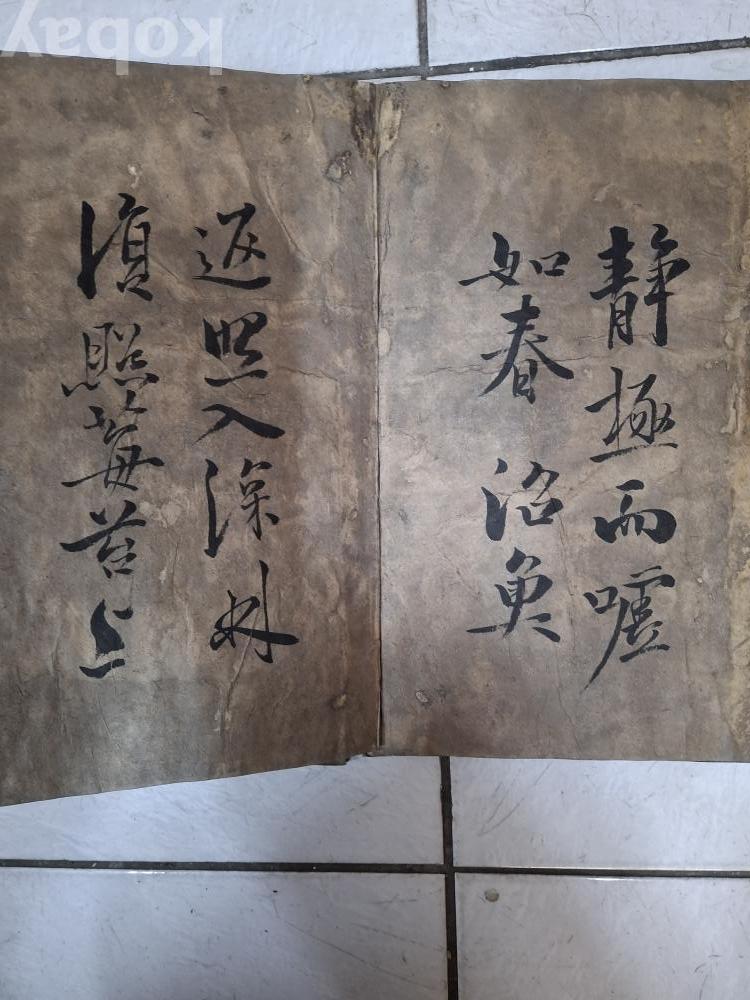 靜極而嘘
如春沼魚
返照入深林
復照莓苔上
kobay